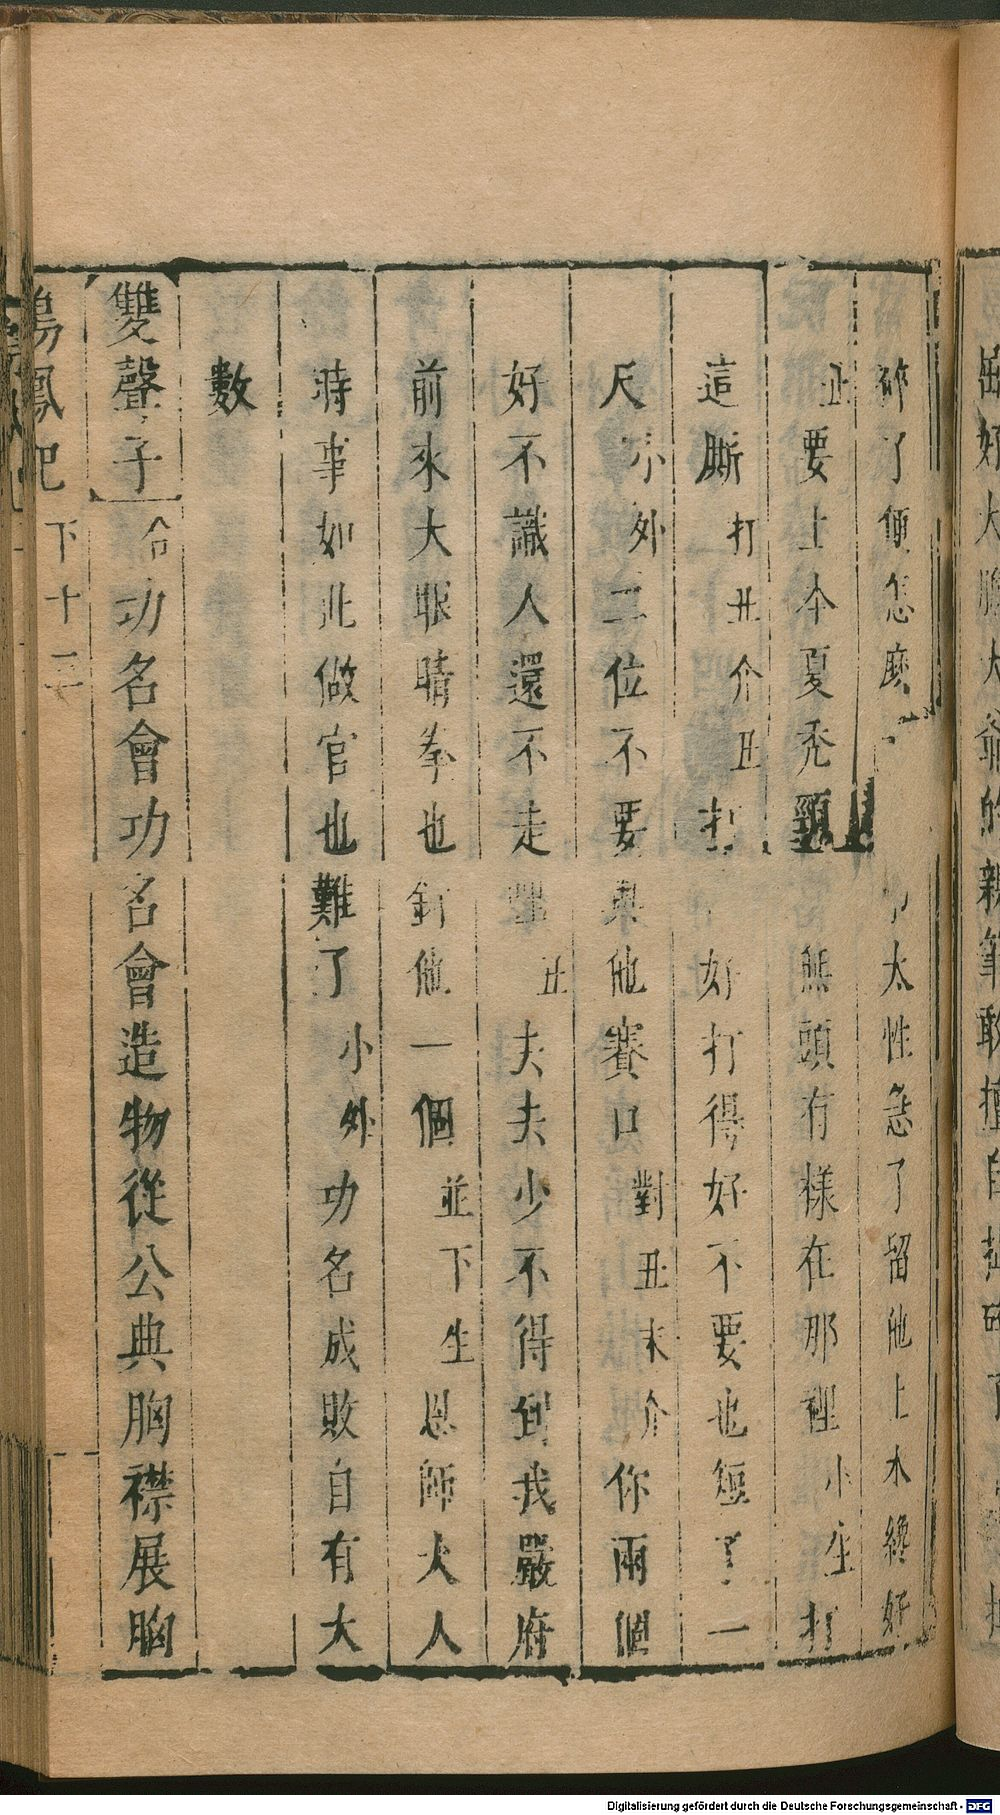 碎了便怎麼 太性急了留他上本纔好
止要上本夏禿頭 無頭有樣在那裡小生打
這厮打丑介丑打 好打得好不要也短了一
尺小外二位不要與他賽口對丑末介你兩個
好不識人還不走 丑夫夫少不得到我嚴府
前來大眼睛拳也 他一個並下生恩師大人
時事如此做官也難了小外功名成敗自有大
數
雙聲子 合功名會功名會造物從公典胸襟展胸
鳴鳳記 下十三
好大膽大爺的親筆敢擅自
Digitalisierung gefördert durch die Deutsche Forschungsgemeinschaft - DFG